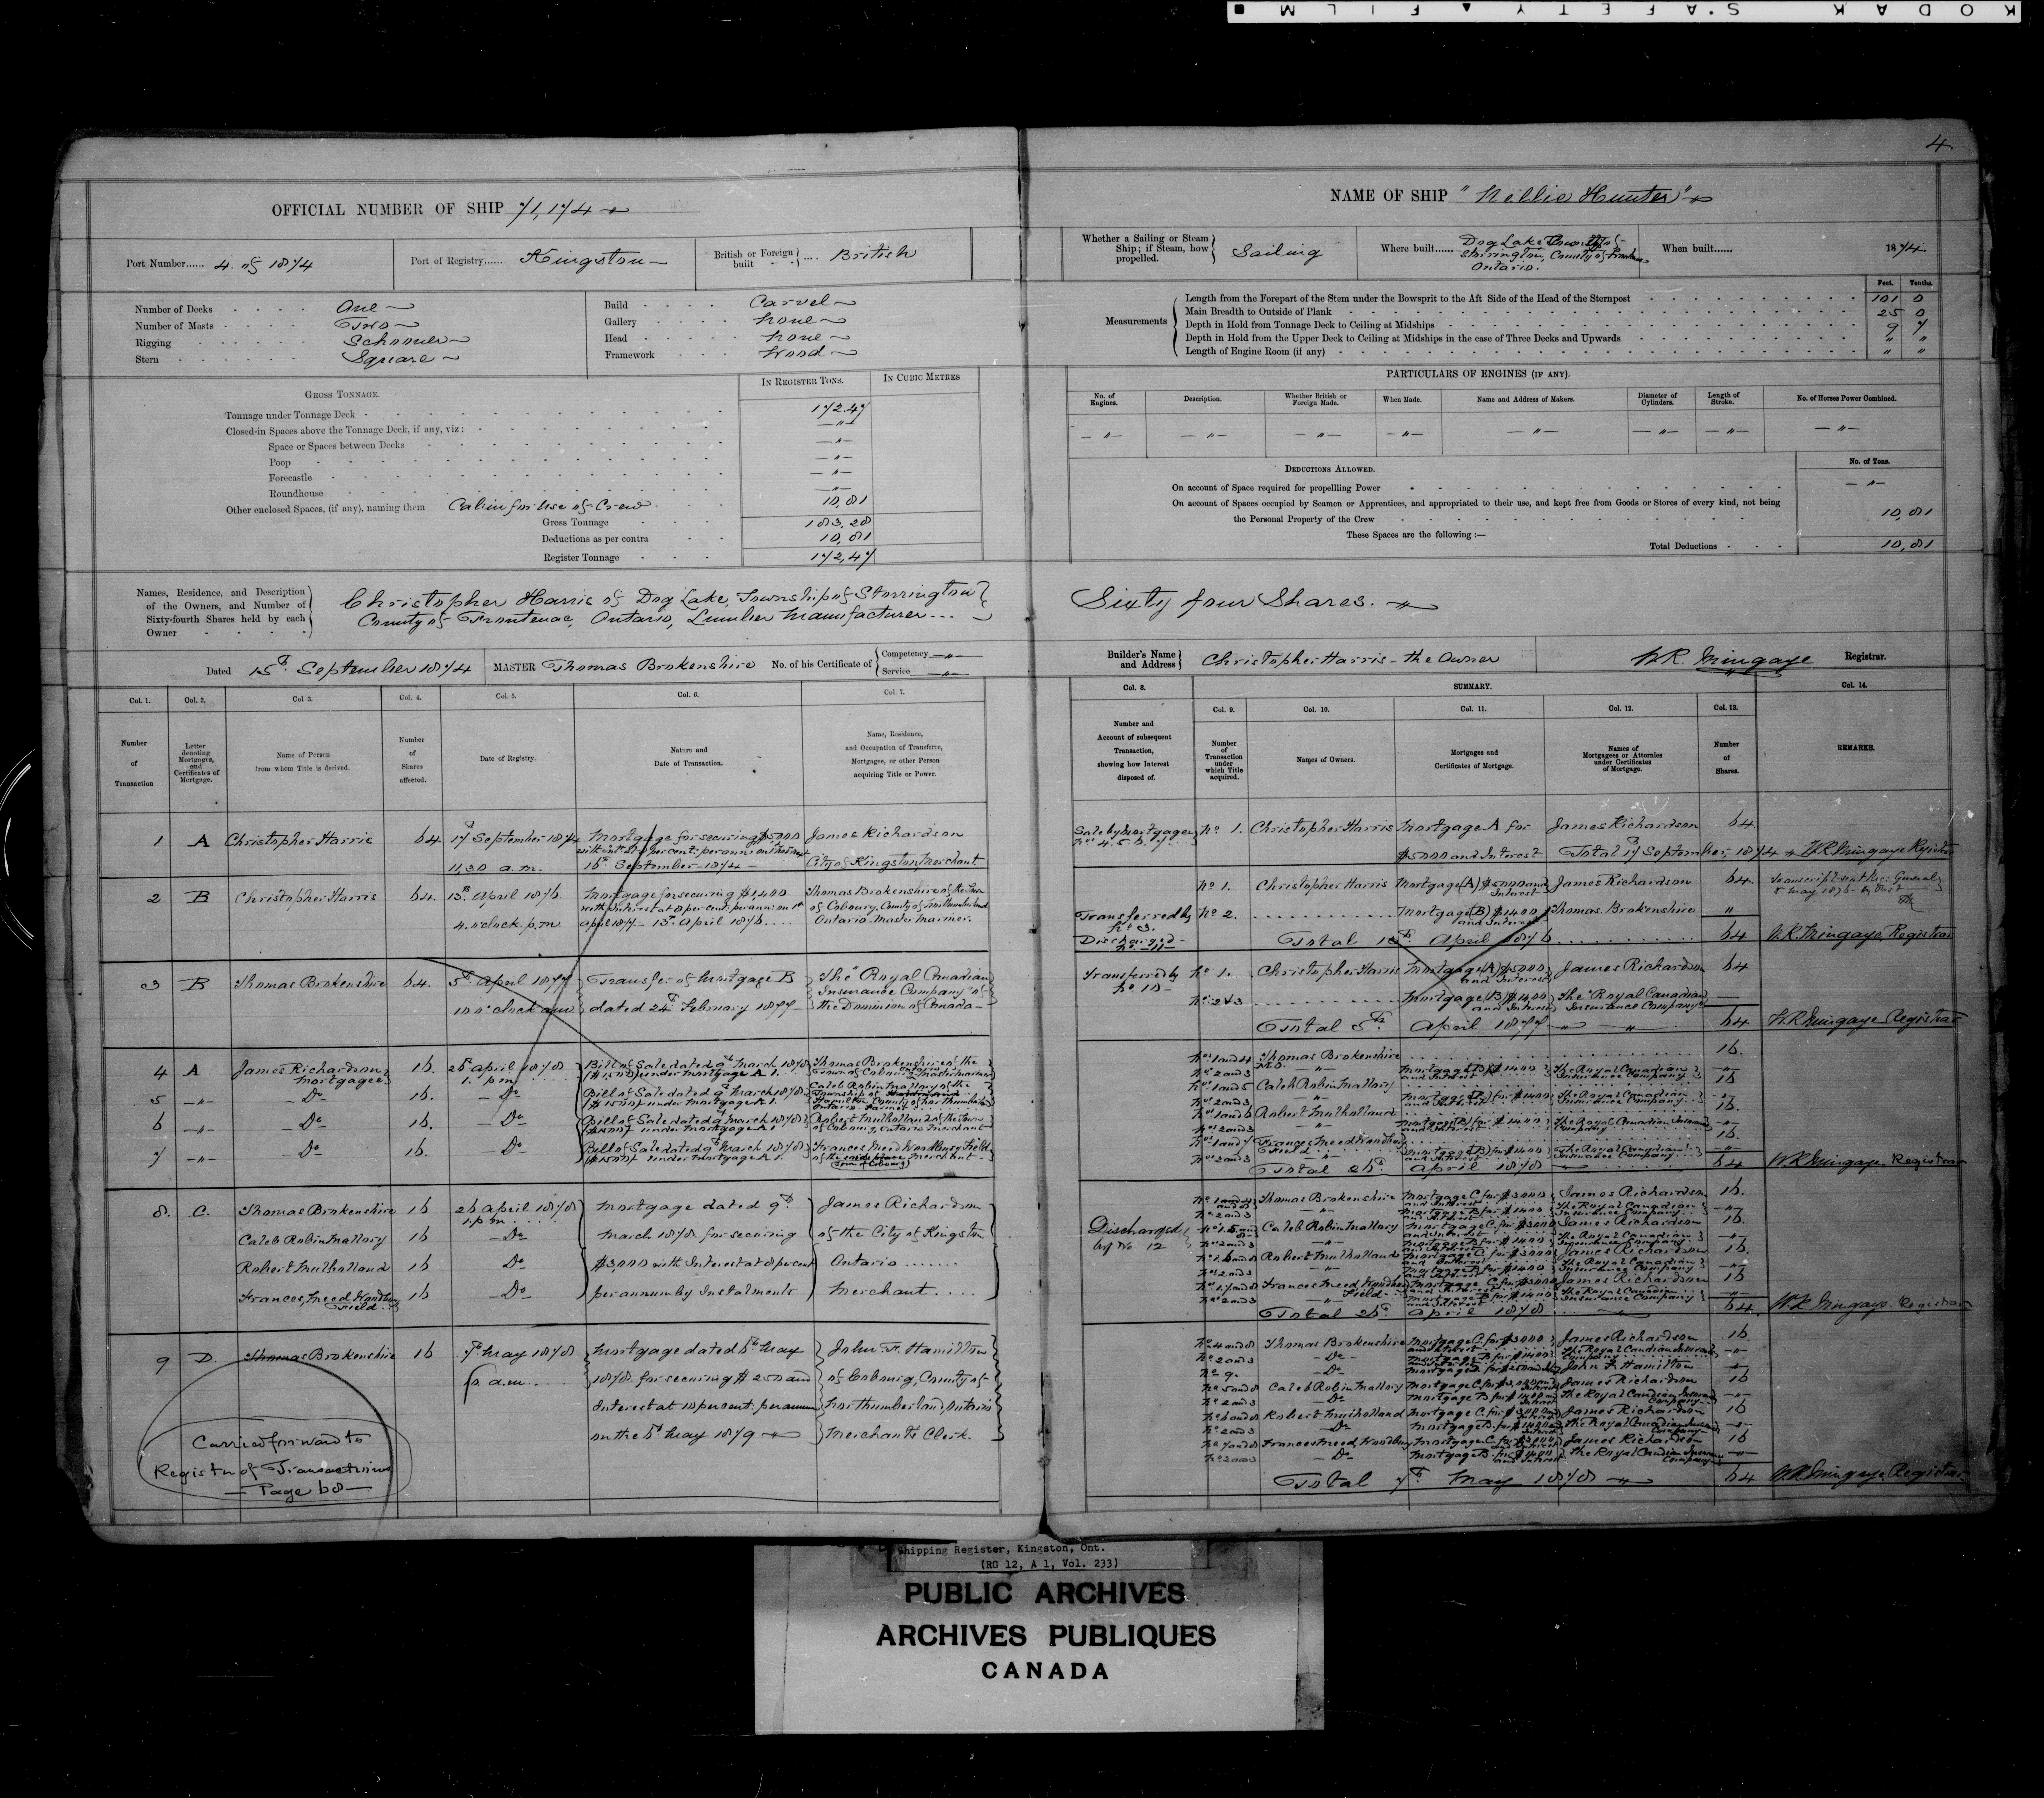 KODAK S.AFETY ▲ FILM ■
4.
OFFICIAL NUMBER OF SHIP 71,174
Port Number...... 4 of 1874
Port of Registry...... Kingston
British or Foreign built .... British
Number of Decks One
Number of Masts Two
Rigging Schooner
Stern Square
Build Carvel
Gallery None
Head None
Framework Wood
GROSS TONNAGE.
IN REGISTER TONS.
IN CUBIC METRES
Tonnage under Tonnage Deck 172.47
Closed-in Spaces above the Tonnage Deck, if any, viz: — " —
Space or Spaces between Decks — " —
Poop — " —
Forecastle — " —
Roundhouse — " —
Other enclosed Spaces, (if any), naming them Cabin for use of Crew 10,81
Gross Tonnage 183,28
Deductions as per contra 10,81
Register Tonnage 172,47
Names, Residence, and Description of the Owners, and Number of Sixty-fourth Shares held by each Owner
Christopher Harris of Dog Lake, Township of Storrington
County of Frontenac, Ontario, Lumber Manufacturer...
Dated 15th September 1874
MASTER Thomas Brokenshire
No. of his Certificate of Competency — " —
Service — " —
Col. 1. Col. 2. Col 3. Col. 4. Col. 5. Col. 6. Col. 7.
Number of Transaction
Letter denoting Mortgages, and Certificates of Mortgage.
Name of Person from whom Title is derived.
Number of Shares affected.
Date of Registry.
Nature and Date of Transaction.
Name, Residence, and Occupation of Transferee, Mortgagee, or other Person acquiring Title or Power.
1 A Christopher Harris 64 17th September 1874 Mortgage for securing $5000 James Richardson
11,30 a.m. 16th September 1874 City of Kingston, Merchant
2 B Christopher Harris 64. 13th April 1876 Mortgage for securing $1,400 Thomas Brokenshire of the Town
with Interest at 8 per cent. per ann. on 1st of Cobourg, County of Northumberland
4. o'clock p.m. April 1877 - 13th April 1876.... Ontario. Master Mariner.
3 B Thomas Brokenshire 64. 5th April 1877 Transfer of Mortgage B The "Royal Canadian
Insurance Company" of
10 o'clock am dated 24th February 1877 the Dominion of Canada
4 A James Richardson 16. 26th April 1878 Bill of Sale dated 9th March 1878 Thomas Brokenshire of the
Mortgagee 1. pm ($1500) under Mortgage A 1. Town of Cobourg Master Mariner
5 — " — Do 16. — Do Bill of Sale dated 9th March 1878 Caleb Robin Mallory of the
($1500) under Mortgage A 1. Township of
Hamilton County of Northumberland
Ontario Farmer
6 — " — Do 16. — Do Bill of Sale dated 9th March 1878 Robert Mulholland of the Town
under Mortgage A 1 of Cobourg, Ontario Merchant
7 — " — Do 16. — Do Bill of Sale dated 9th March 1878 Frances Meed Woodbury Field
($1500) under Mortgage A 1. of the same place Merchant
(Town of Cobourg)
8. C. Thomas Brokenshire 16 26 April 1878 Mortgage dated 9th James Richardson
1 pm
Caleb Robin Mallory 16 — Do March 1878 for securing of the City of Kingston
Robert Mulholland 16 Do $3,000 with Interest at 8 percent Ontario.......
Frances, Meed Woodbury Field 16 — Do per annum by Instalments Merchant....
9 D. Thomas Brokenshire 16 7th May 1878 Mortgage dated 6th May John F. Hamilton
a.m. 1878. for securing $250 and of Cobourg, County of
Interest at 10 per cent. per annum Northumberland, Ontario
on the 6th May 1879 Merchants Clerk.
Carried forward to
Register of Transactions
— Page 68 —
NAME OF SHIP "Nellie Hunter"
Whether a Sailing or Steam Ship; if Steam, how propelled. Sailing
Where built...... Dog Lake Township of
Storrington, County of Frontenac
Ontario.
When built...... 1874.
Measurements
Feet. Tenths.
Length from the Forepart of the Stem under the Bowsprit to the Aft Side of the Head of the Sternpost 101 0
Main Breadth to Outside of Plank 25 0
Depth in Hold from Tonnage Deck to Ceiling at Midships 9 7
Depth in Hold from the Upper Deck to Ceiling at Midships in the case of Three Decks and Upwards " "
Length of Engine Room (if any) " "
PARTICULARS OF ENGINES (IF ANY).
No. of Engines. Description. Whether British or Foreign Made. When Made. Name and Address of Makers. Diameter of Cylinders. Length of Stroke. No. of Horses Power Combined.
— " — — " — — " — — " — — " — — " — — " — — " —
DEDUCTIONS ALLOWED.
No. of Tons.
On account of Space required for propellling Power — " —
On account of Spaces occupied by Seamen or Apprentices, and appropriated to their use, and kept free from Goods or Stores of every kind, not being
the Personal Property of the Crew 10,81
These Spaces are the following :—
Total Deductions 10,81
Sixty four Shares.
Builder's Name and Address Christopher Harris - the Owner
W.R. Mingaye Registrar.
Col. 8. SUMMARY. Col. 14.
Col. 9. Col. 10. Col. 11. Col. 12. Col. 13.
Number and Account of subsequent Transaction, showing how Interest disposed of.
Number of Transaction under which Title acquired.
Names of Owners.
Mortgages and Certificates of Mortgage.
Names of Mortgagees or Attornies under Certificates of Mortgage.
Number of Shares.
REMARKS.
Sale by Mortgagee No. 4. 5. 6. 7. No 1. Christopher Harris Mortgage A for James Richardson 64
$5000 and Interest Total 17 September, 1874 W.R. Mingaye Registrar
No 1. Christopher Harris Mortgage (A) $5000 and Interest James Richardson 64. Transcript sent Reg: General
5 May 1876
Transferred by No 3. No 2. Mortgage (B) $1400 and Interest Thomas Brokenshire "
Discharged No 11 Total 13th April 1876 64 W.R. Mingaye, Registrar
Transferred by No 10 No 1. Christopher Harris Mortgage (A) $5000 and Interest James Richardson 64
No 2 & 3 Mortgage (B) $1400 and Interest The "Royal Canadian Insurance Company" —
Total 5th April 1877 64 W.R. Mingaye Registrar
No 1 and 4 Thomas Brokenshire 16.
No 2 and 3 Mortgage (B) $1400 and Interest The Royal Canadian Insurance Company — " —
No 1 and 5 Caleb Robin Mallory 16
No 2 and 3 Mortgage (B) for $1400 and Interest The Royal Canadian Insurance Company — " —
No 1 and 6 Robert Mulholland 16.
No 2 and 3 Mortgage (B) for $1400 and Interest The Royal Canadian Insurance Company — " —
No 1 and 7 Frances Meed Woodbury Field 16.
No 2 and 3 Mortgage (B) for $1400 and Interest The Royal Canadian Insurance Company — " —
Total 26th April 1878 64 W.R. Mingaye. Registrar
Discharged by No 12
Thomas Brokenshire Mortgage C. for $3000 and Interest James Richardson 16.
No 2 and 3 Mortgage B for $1400 and Interest The Royal Canadian Insurance Company — " —
Caleb Robin Mallory Mortgage C. for $3000 and Interest James Richardson 16.
No 2 and 3 Mortgage B for $1400 and Interest The Royal Canadian Insurance Company — " —
Robert Mulholland Mortgage C. for $3000 and Interest James Richardson 16.
No 2 and 3 Mortgage B for $1400 and Interest The Royal Canadian Insurance Company — " —
Frances Meed, Woodbury Field Mortgage C for $3000 and Interest James Richardson 16
No 2 and 3 Mortgage B for $1400 and Interest The Royal Canadian Insurance Company — " —
Total 26th April 1878 64 W.R. Mingaye. Registrar
No 4 and 8 Thomas Brokenshire Mortgage C. for $3000 and Interest James Richardson 16
No 2 and 3 — Do — Mortgage B for $1400 The Royal Canadian Insurance Company — " —
No 9. Mortgage D for $250 and John F. Hamilton — " —
No 5 and 8 Caleb Robin Mallory Mortgage C. for $3,000 and Interest James Richardson 16
No 2 and 3 — Do Mortgage B for $1400 and Interest The Royal Canadian Insurance Company — " —
No 6 and 8 Robert Mulholland Mortgage C. for $3000 and Interest James Richardson 16
No 2 and 3 — Do Mortgage B. for $1400 and Interest The Royal Canadian Insurance Company — " —
No 7 and 8 Frances Meed, Woodbury Mortgage C. for $3000 and Interest James Richardson 16
No 2 and 3 — Do — Mortgage B for $1400 and Interest The Royal Canadian Insurance Company — " —
Total 7th May 1878 64 W.R. Mingaye. Registrar
Shipping Register, Kingston, Ont.
(RG 12, A 1, Vol. 233)
PUBLIC ARCHIVES
ARCHIVES PUBLIQUES
CANADA